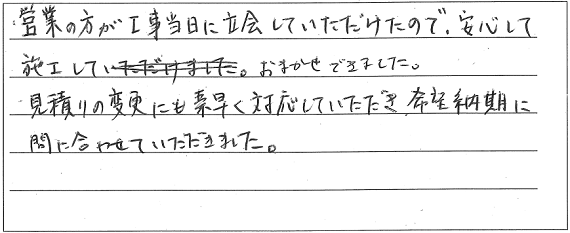 営業の方が工事当日に立会していただけたので、安心して
施工していただけました。おまかせできました。
見積りの変更にも素早く対応していただき、希望納期に
間に合わせていただきました。